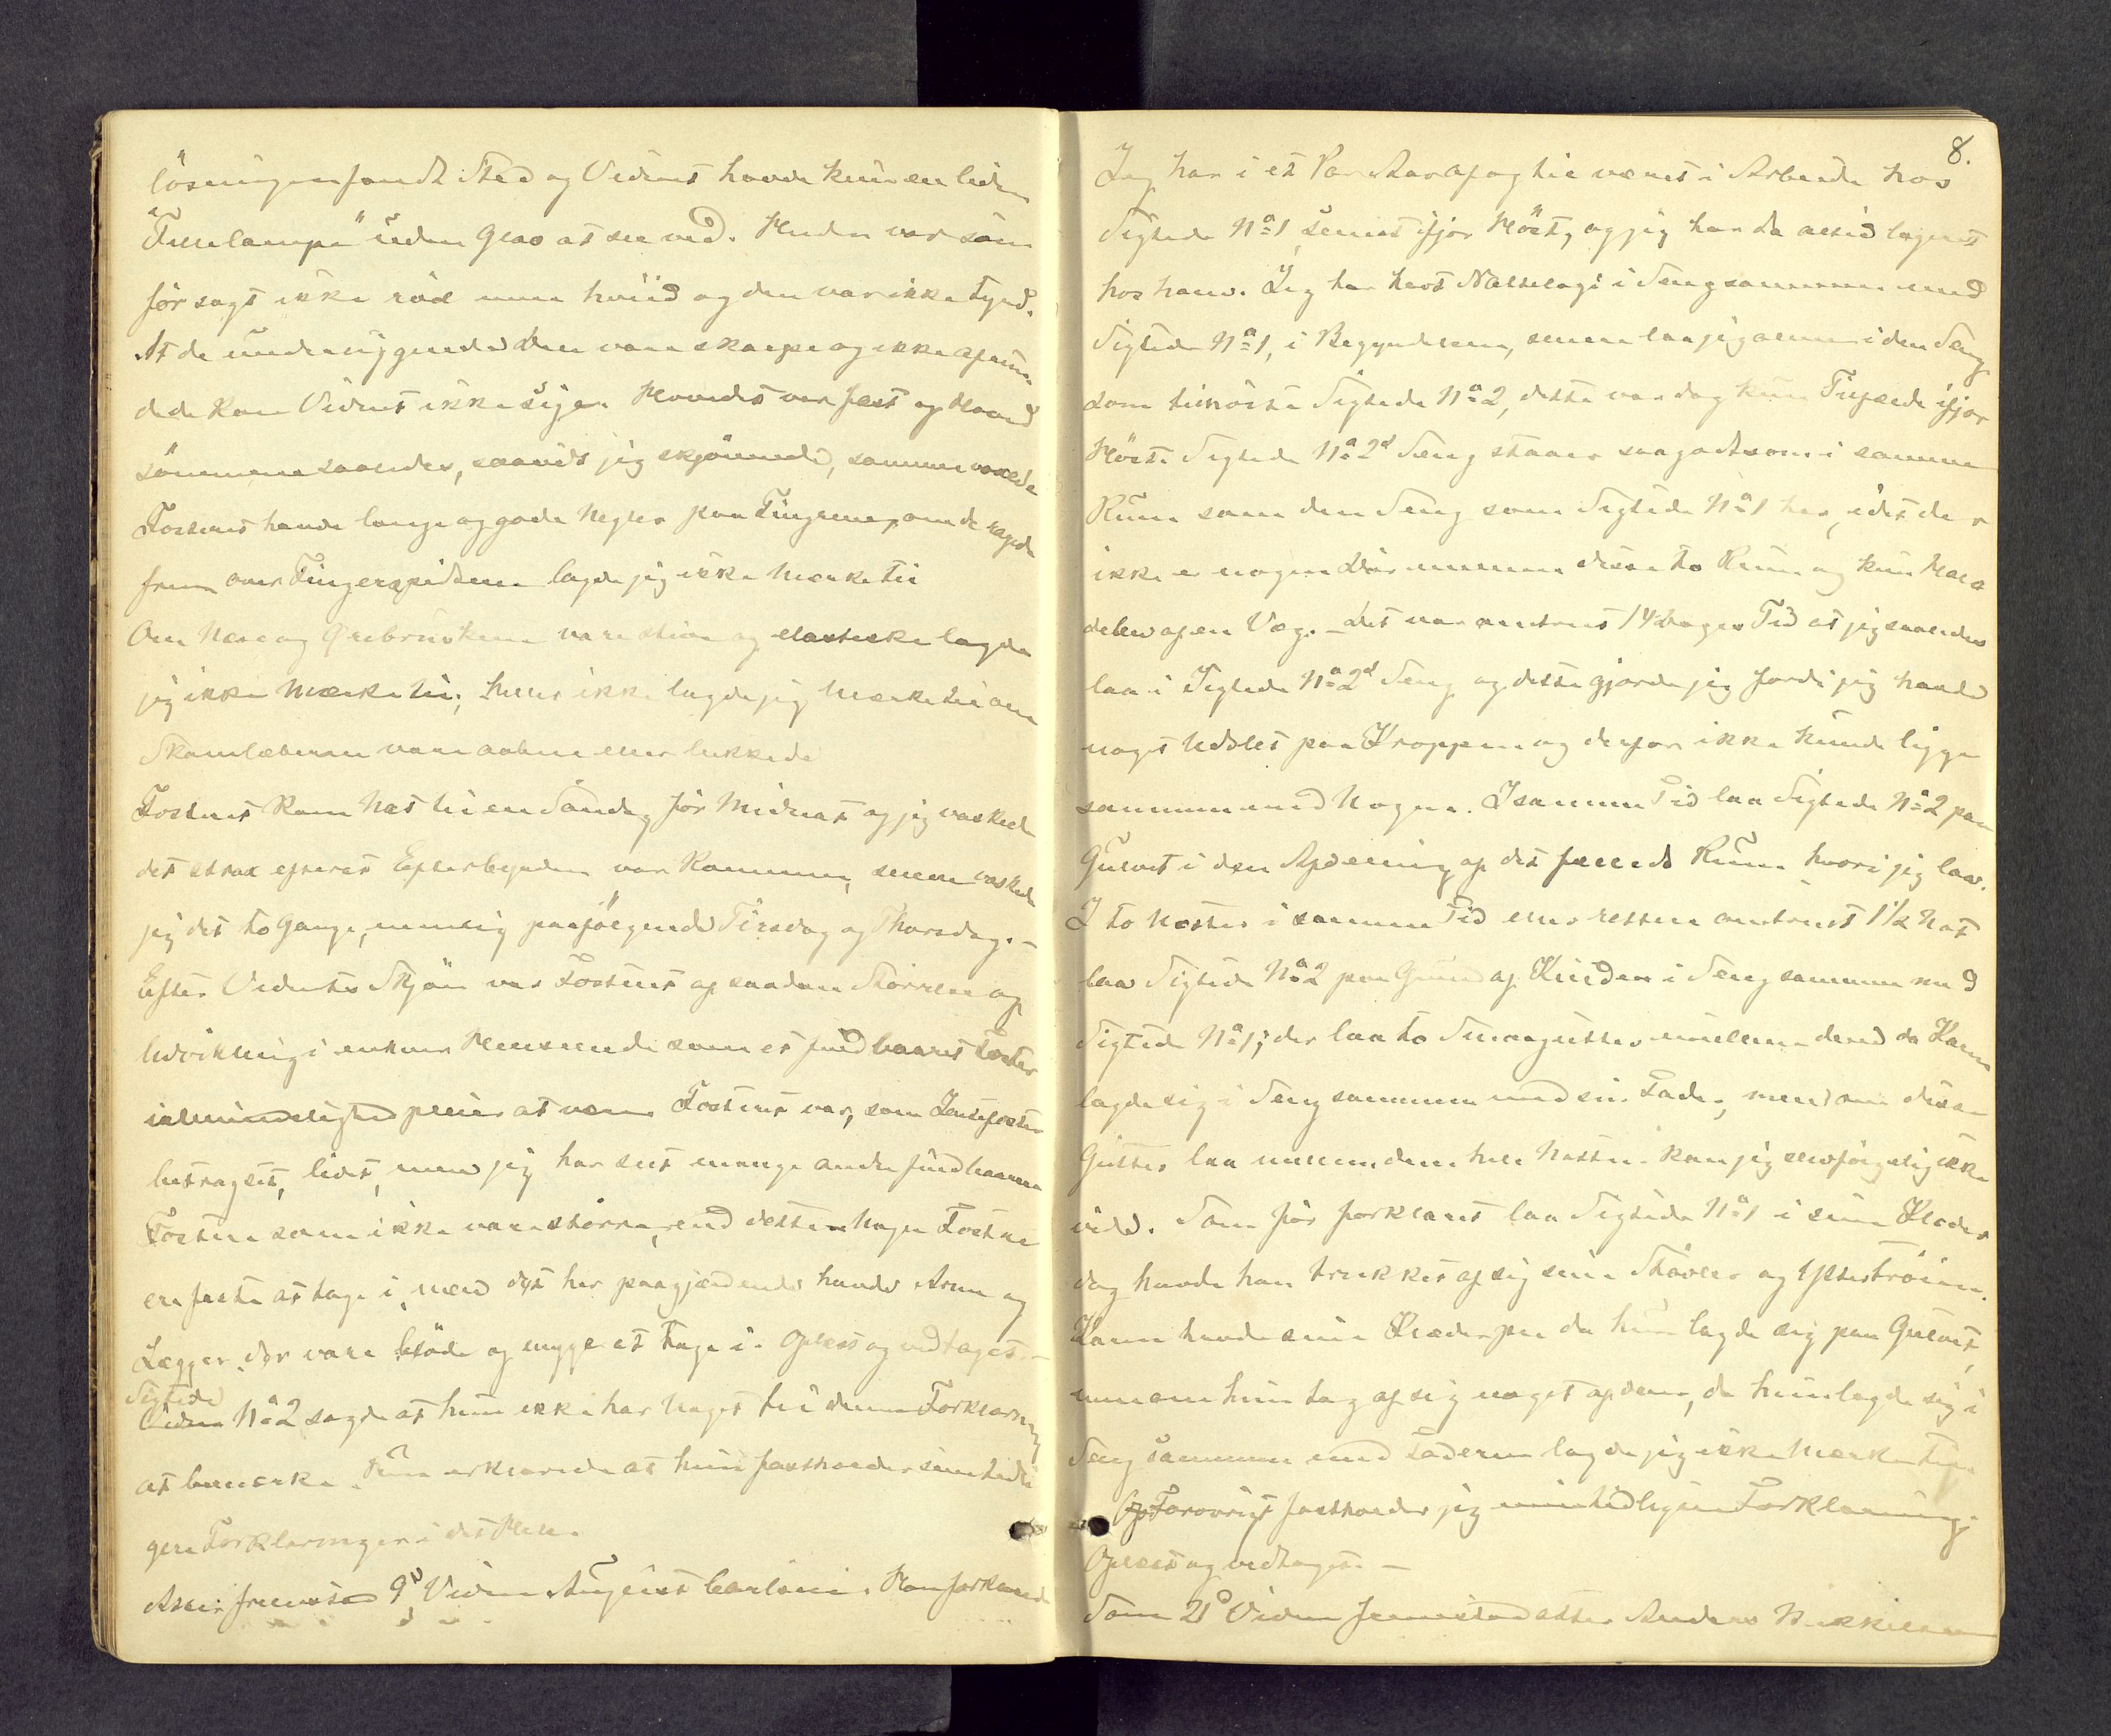 lösningen fandt Sted og Vidnet havde kun en liden
"Tullelampe" uden Glas at see ved. Huden var som
før sagt ikke röd men hvid og den var ikke tynd.
At de underliggende Been vare skarpe og ikke afrun-
dede kan Vidnet ikke sige. Hovedet var fast og Hoved
sömmene saaledes, saavidt jeg skjönnede, sammenvoxede
Fosteret havde lange og gode Negler paa Fingrene, om de ragede
frem over Fingerspidsene lagde jeg ikke Mærke til
Om Næse og Örebruskene vare stive og elastiske lagde
jeg ikke Mærke til; heller ikke lagde jeg Mærke til om
Skamlæberne vare aabne eller lukkede
Fosteret kom Nat til en Söndag før Midnat og jeg vaskede
det strax efterat Efterbyrden var kommen, senere vaskede
jeg det to Gange, nemlig paafölgende Tirsdag og Thorsdag. –
Efter Vidnets Skjön var Fosteret af saadan Störrelse og
Udvikling i enhver Henseende som et fuldbaaret Foster
i almindelighed pleier at være. Fosteret var, som
betragtet, lidet, men jeg har seet mange andre fuldbaarne
Fostere som ikke vare större, end dette. Nogle Fostre
ere faste at tage i, men det her paagjældende havde Arme og
Lægger der vare blöde og myge at tage i. Oplæst og vedtaget. –
Sigtede
Vidne No 2 sagde at hun ikke har Noget til denne Forklaring
at bemærke. Hun erklærede at hun fastholder sine tidli
gere Forklaringer i det Hele.
Atter fremstod 9d Vidne August Carlsen. Han forklarede
8.
Jeg har i et Par Aar af og til været i Arbeide hos
Sigtede No 1, senest ifjor Höst, og jeg har da altid logeret
hos ham. Jeg har havt Natteleie i Seng sammen med
Sigtede No 1, i Begyndelsen, senere laa jeg alene i den Seng
som tilhörte Sigtede No 2, dette var dog kun Tilfælde ifjor
Höst. Sigtede No 2s Seng staaer saagodtsom i samme
Rum som den Seng som Sigtede No 1 har, idet der
ikke er nogen Dör mellem disse to Rum og kun
delen af en Væg. – Det var omtrent 14 Dages Tid at jeg saaledes
laa i Sigtede No 2s Seng og dette gjorde jeg fordi jeg havde
noget Udslet paa Kroppen og derfor ikke kunde ligge
sammen med Nogen. I samme Tid laa Sigtede No 2 paa
Gulvet i den Afdeling af det fælleds Rum hvori jeg laa.
I to Nætter i samme Tid eller rettere omtrent 1 1/2 Nat
laa Sigtede No 2 paa Grund af Kulden i Seng sammen med
Sigtede No 1; der laa to Smaagutter mellem dem da Karen
lagde sig i Seng sammen med sin Fader, men om disse
Gutter laa mellem dem hele Natten kan jeg selvfölgelig ikke
vide. Som før forklaret laa Sigtede No 1 i sine Klæder
dog havde han trukket af sig sine Stövler og Ystertröien.
Karen havde sine Klæder paa da hun lagde sig paa Gulvet,
men om hun tog af sig noget af dem, da hun lagde sig i
Seng sammen med Faderen lagde jeg ikke Mærke til.
Forövrigt fastholder jeg min tidligere Forklaring.
Oplæst og vedtaget. –
Som 21d Vidne fremstod atter Anders Mikkelsen